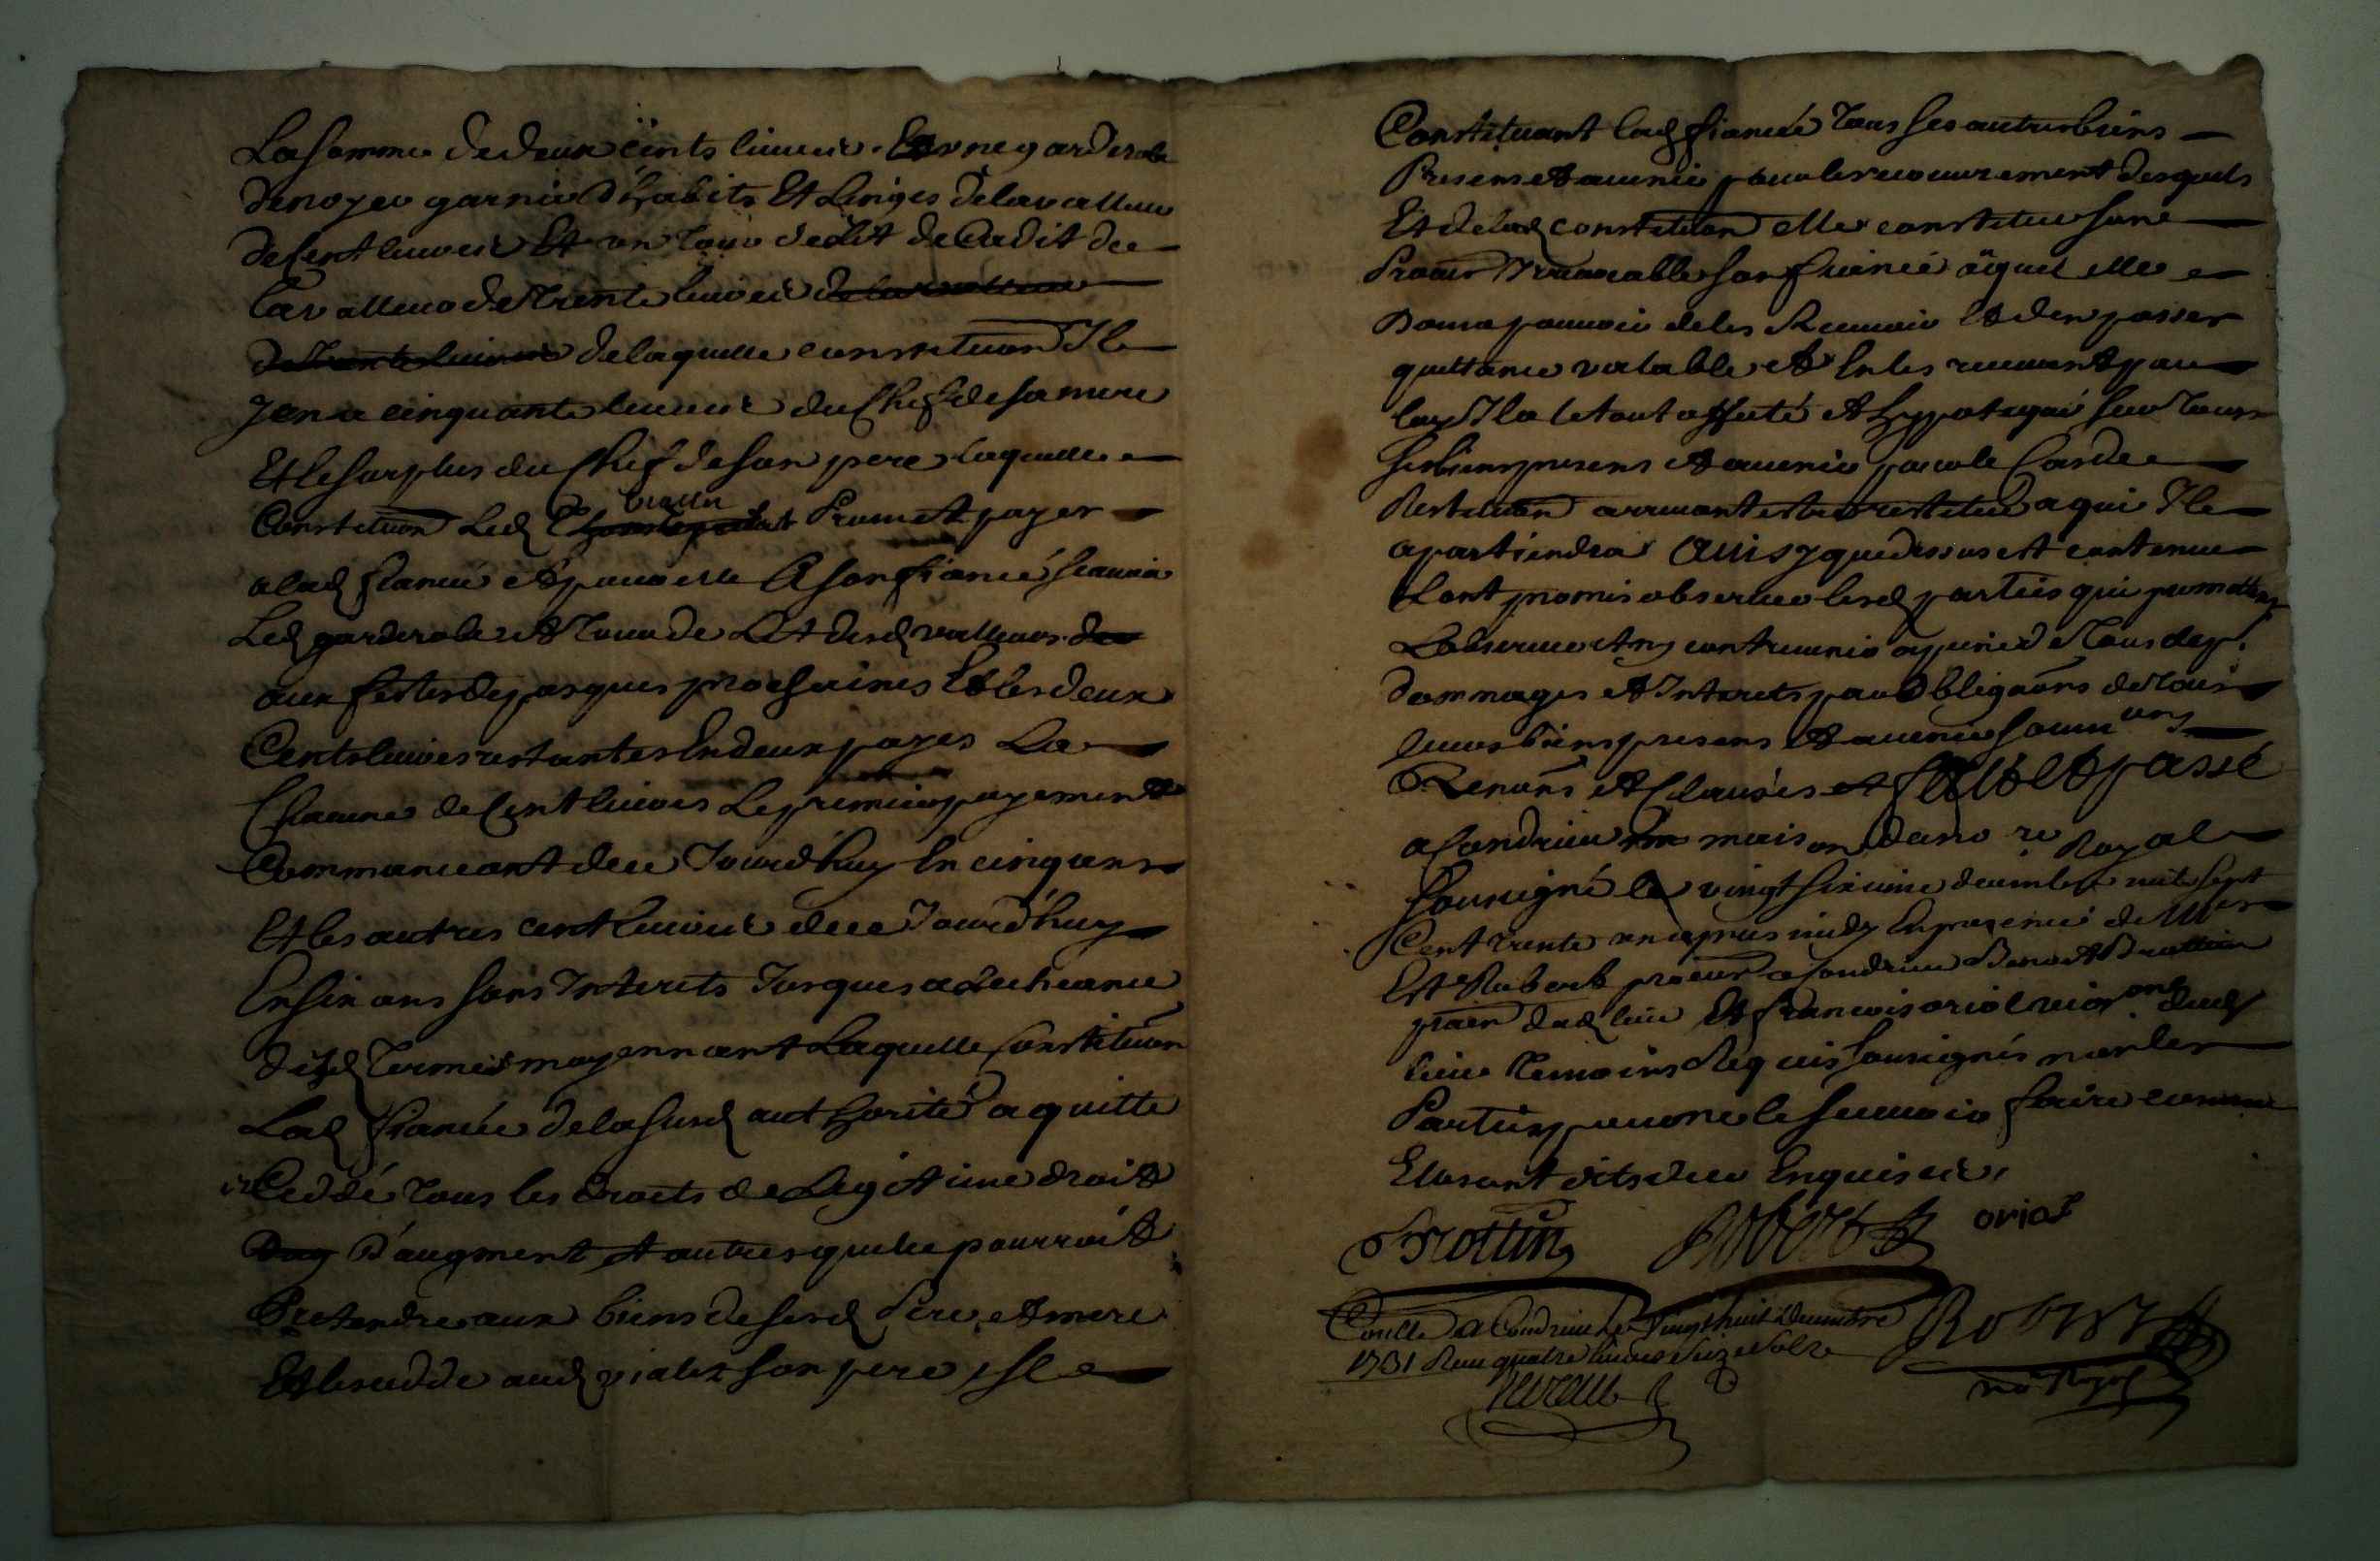 La somme de deux cents livres. Et une garderobe
de noyer garnie d'habits Et Linges de la valleur
de Cent livres Et un tour de Lit de Cadit de
la valleur de Trente livres de la valleur
de Trente livres de laquelle constitution Il
y en a cinquante livres du Chef de sa mere
Et le surplus du Chef de son pere laquelle
Constitution Led vialler Promet payer
a lad fiancée et pour elle A son fiancé scavoir
Led garderobe et Tour de Lit desd valleurs
aux festes de pasques prochaines Et les deux
Cents livres restantes En deux payes La
Chacune de Cent livres Le premier payement
Commanceant de ce Jourd'huy En cinq ans
Et les autres cent livres de ce Jourd'huy
En six ans sans Interets Jusques a Lecheance
desd Termes moyennant Laquelle Constitution
Lad fiancée de la susd authorité a quitté
Ceddé tous les droits de Legitime droit
D'augment et autres quelle pourroit
Pretendre aux biens de sesd Pere et mere
Et les cedde aud vialet son pere se
Constituant lad fiancée Tous ses autres biens
Presens et avenir pour le recouvrement desquels
Et de lad constitution elle constitue son
Procur Irrevocable son fiancé auquel elle
Donne pouvoir de les Recevoir Et d'en passer
quittance valable et En les recevant par
luy Il a le tout affecté et hypotequé sur tous
ses biens presens et avenir pour le Cas de
Restitution arrivant estre restitué a qui Il
apartiendra Ainsy que dessus est contenu
L'ont promis observer lesd parties qui promettent
L'observer et ny contrevenir a peine de Tous dep.
dommages et Interets par Obligations de tous
leurs biens presens et avenir soumons
Renons et Clauses et fait et passé
a Condrieu maison du no re Royal
soussigné le vingt sixieme decembre mil sept
Cent trente un apres midy En presence de Mes
Est Robert procur a Condrieu Benoit Brottin
pratn dud lieu Et francois oriol vigron dud
lieu Temoins Requis soussignés non les
Parties pour ne le scavoir faire comme
Elles ont dit de ce Enquises.
Brottin Robert oriol
Conllé a Condrieu le vingt huit decembre
1731 Receu quatre livres seize sols
Robert
no Royal